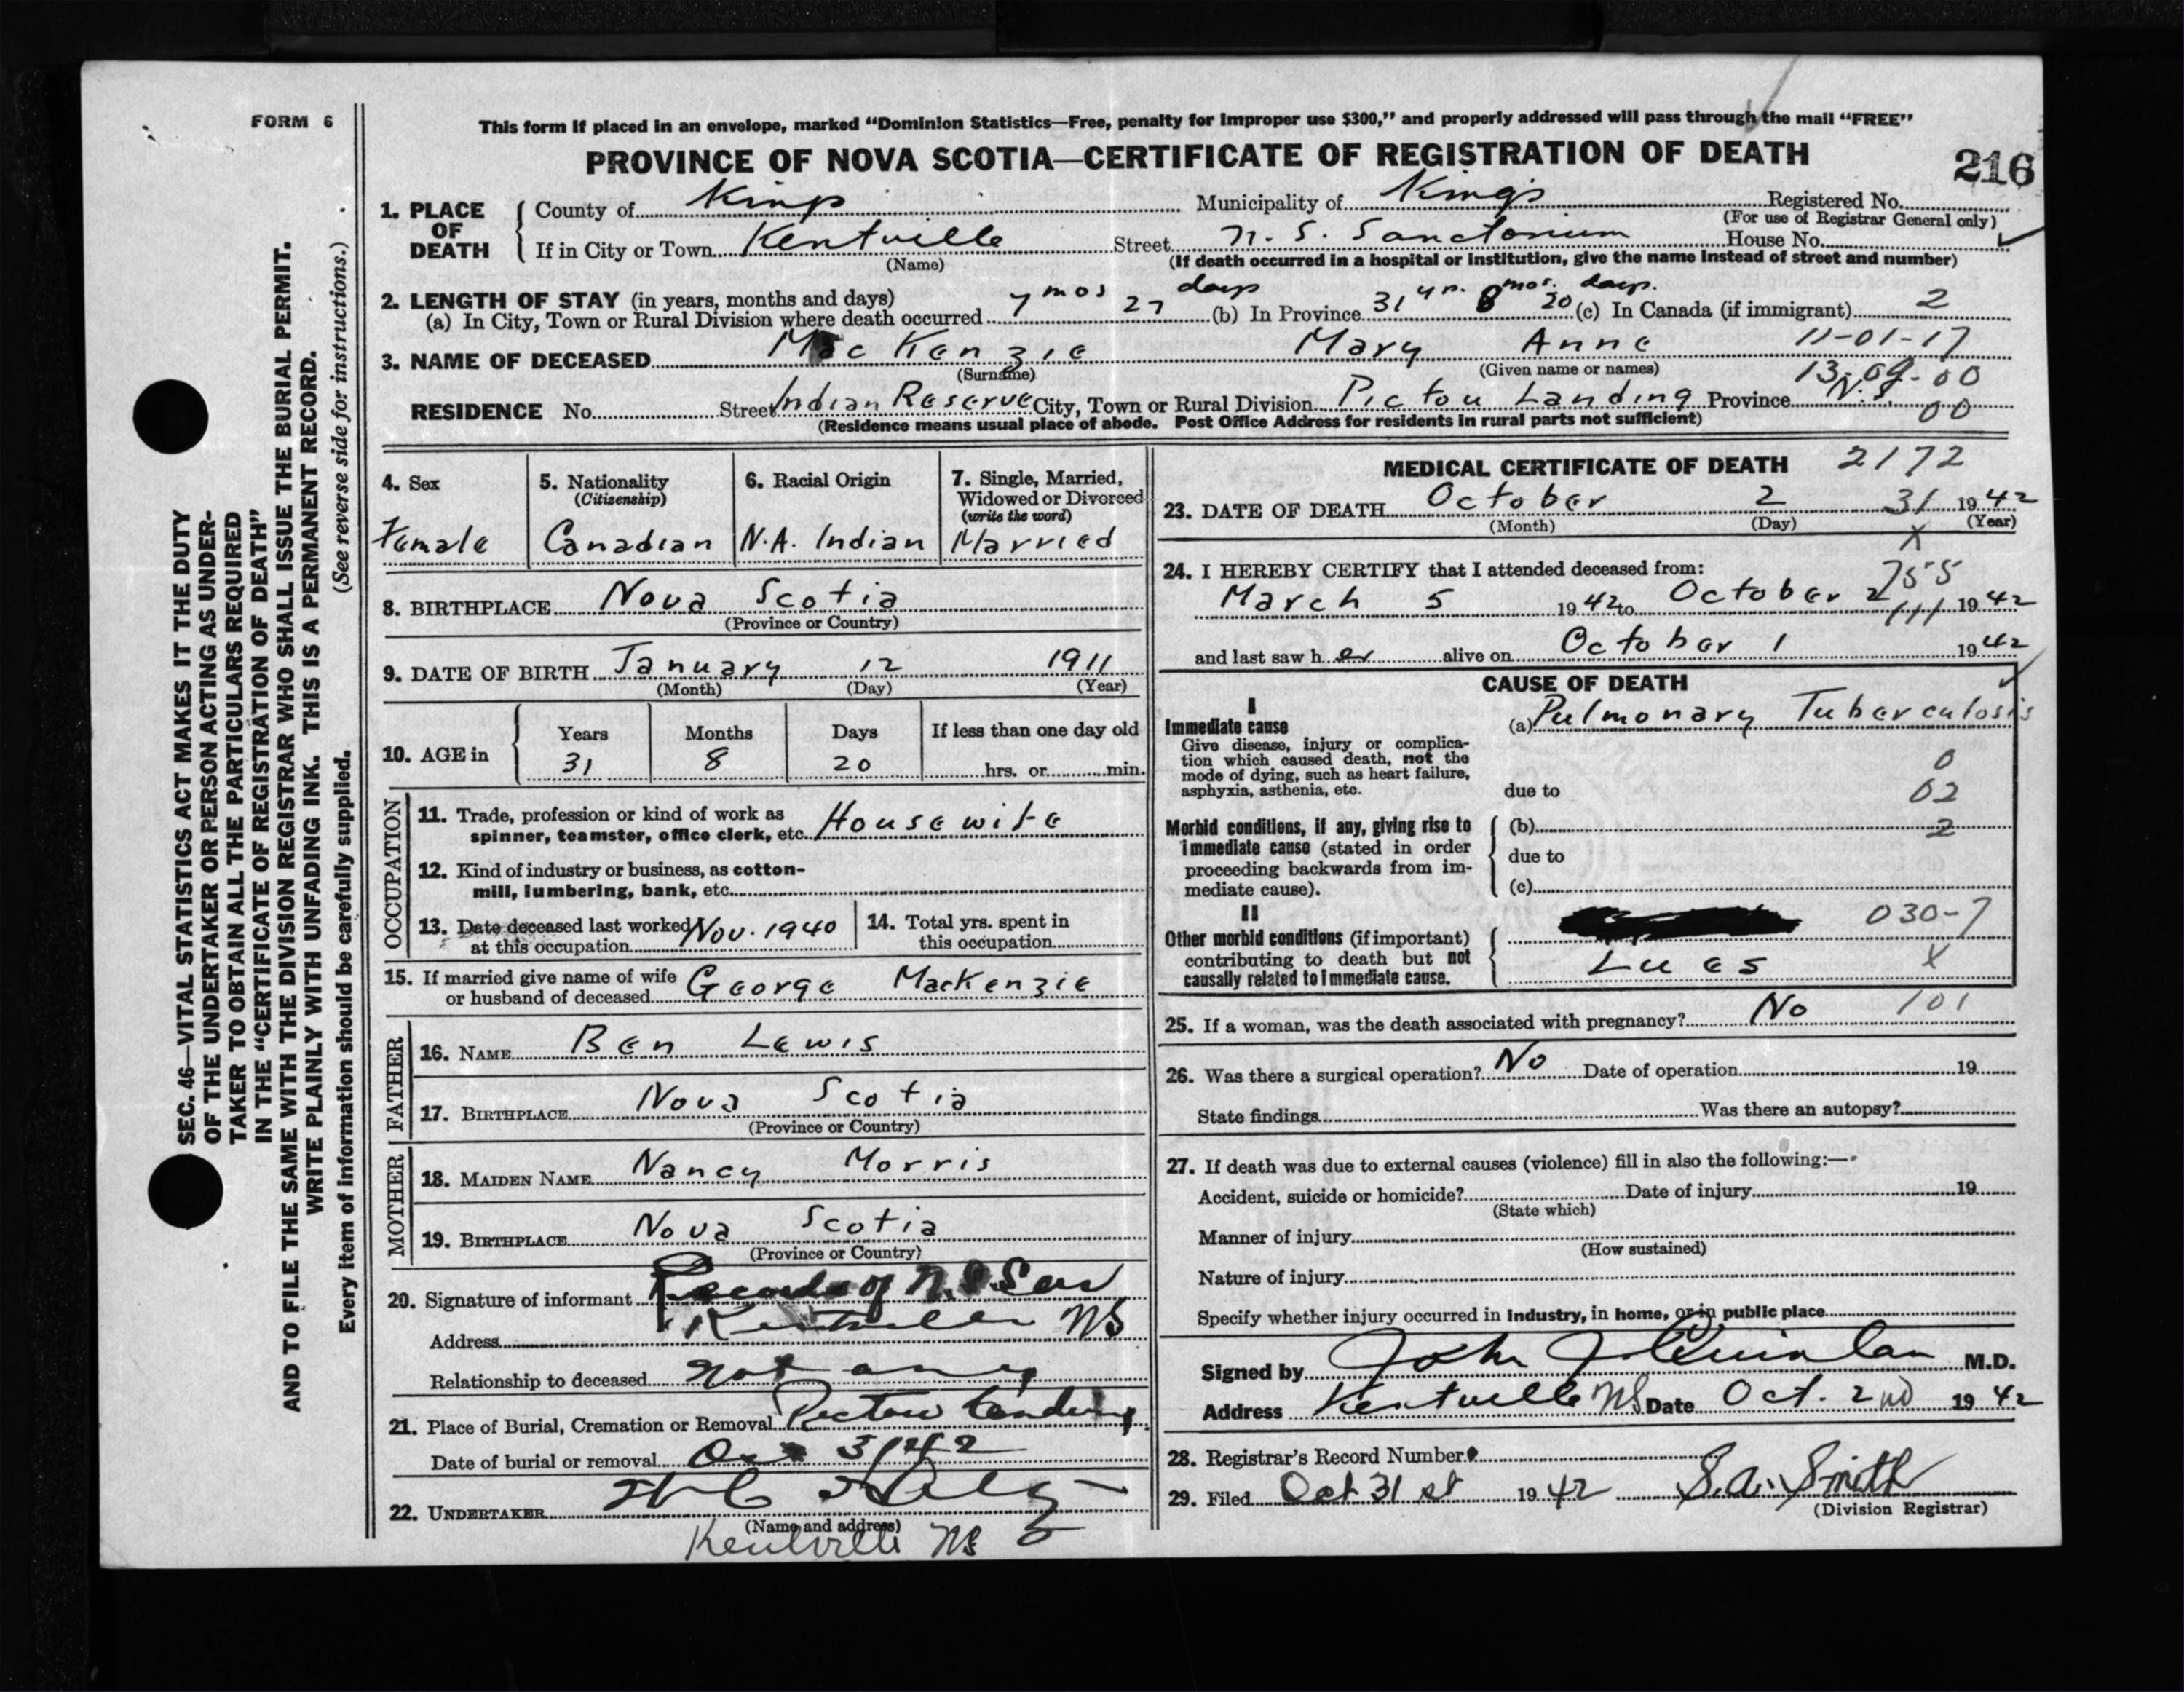 FORM 6
This form if placed in an envelope, marked "Dominion Statistics—Free, penalty for improper use $300," and properly addressed will pass through the mail "FREE"
PROVINCE OF NOVA SCOTIA—CERTIFICATE OF REGISTRATION OF DEATH
216
1. PLACE OF DEATH
County of Kings Municipality of Kings Registered No.
(For use of Registrar General only)
If in City or Town Kentville Street N. S. Sanctorium House No.
(Name) (If death occurred in a hospital or institution, give the name instead of street and number)
2. LENGTH OF STAY (in years, months and days)
(a) In City, Town or Rural Division where death occurred 7 mos 27 days (b) In Province 31 yr. 8 mos. 20 days. (c) In Canada (if immigrant) 2
3. NAME OF DECEASED MacKenzie Mary Anne 11-01-17
(Surname) (Given name or names) 13-09-00
RESIDENCE No. Street Indian Reserve City, Town or Rural Division Pictou Landing Province N.S. 00
(Residence means usual place of abode. Post Office Address for residents in rural parts not sufficient)
4. Sex
Female
5. Nationality
(Citizenship)
Canadian
6. Racial Origin
N.A. Indian
7. Single, Married, Widowed or Divorced
(write the word)
Married
8. BIRTHPLACE Nova Scotia
(Province or Country)
9. DATE OF BIRTH January 12 1911
(Month) (Day) (Year)
10. AGE in Years Months Days If less than one day old
31 8 20 hrs. or min.
OCCUPATION
11. Trade, profession or kind of work as
spinner, teamster, office clerk, etc. Housewife
12. Kind of industry or business, as cotton-
mill, lumbering, bank, etc.
13. Date deceased last worked
at this occupation Nov. 1940
14. Total yrs. spent in
this occupation
15. If married give name of wife
or husband of deceased George MacKenzie
FATHER
16. NAME Ben Lewis
17. BIRTHPLACE Nova Scotia
(Province or Country)
MOTHER
18. MAIDEN NAME Nancy Morris
19. BIRTHPLACE Nova Scotia
(Province or Country)
20. Signature of informant Records of N.S San
Address Kentville NS
Relationship to deceased not any
21. Place of Burial, Cremation or Removal Pictou Landing
Date of burial or removal Oct 3/42
22. UNDERTAKER
(Name and address)
Kentville NS
MEDICAL CERTIFICATE OF DEATH 2172
23. DATE OF DEATH October 2 31 1942
(Month) (Day) (Year)
X
24. I HEREBY CERTIFY that I attended deceased from:
755
March 5 1942 to October 2 111 1942
and last saw her alive on October 1 1942
CAUSE OF DEATH
I
Immediate cause (a) Pulmonary Tuberculosis
Give disease, injury or complica-
tion which caused death, not the
mode of dying, such as heart failure,
asphyxia, asthenia, etc.
0
due to 02
Morbid conditions, if any, giving rise to
immediate cause (stated in order
proceeding backwards from im-
mediate cause).
(b) 2
due to
(c)
II
Other morbid conditions (if important)
contributing to death but not
causally related to immediate cause.
030-7
Lues X
25. If a woman, was the death associated with pregnancy? No 101
26. Was there a surgical operation? No Date of operation 19
State findings Was there an autopsy?
27. If death was due to external causes (violence) fill in also the following:—
Accident, suicide or homicide? Date of injury 19
(State which)
Manner of injury
(How sustained)
Nature of injury
Specify whether injury occurred in industry, in home, or in public place
Signed by John J Quinlan M.D.
Address Kentville NS Date Oct. 2nd 1942
28. Registrar's Record Number
29. Filed Oct 31 st 1942 S.A. Smith
(Division Registrar)
SEC. 46—VITAL STATISTICS ACT MAKES IT THE DUTY
OF THE UNDERTAKER OR PERSON ACTING AS UNDER-
TAKER TO OBTAIN ALL THE PARTICULARS REQUIRED
IN THE "CERTIFICATE OF REGISTRATION OF DEATH"
AND TO FILE THE SAME WITH THE DIVISION REGISTRAR WHO SHALL ISSUE THE BURIAL PERMIT.
WRITE PLAINLY WITH UNFADING INK. THIS IS A PERMANENT RECORD.
Every item of information should be carefully supplied. (See reverse side for instructions.)